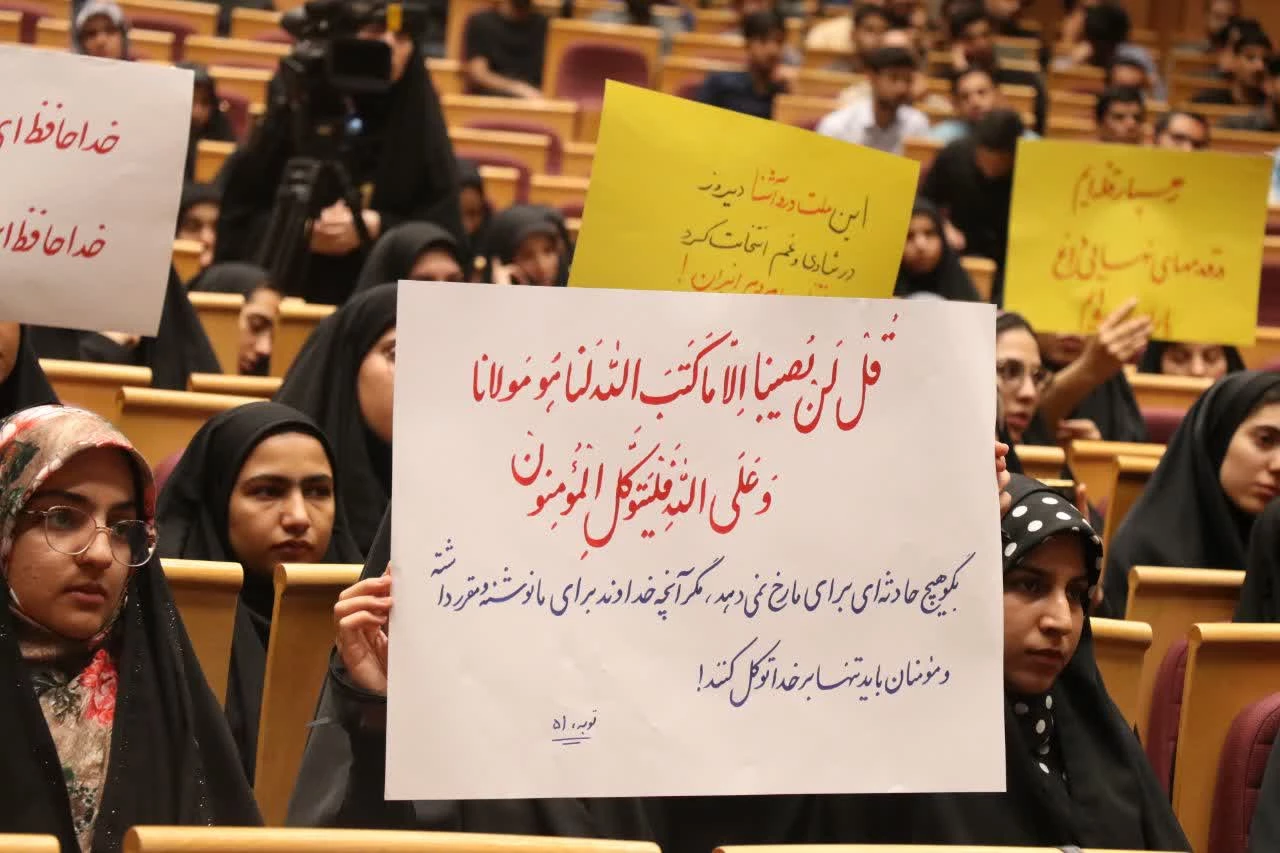 خداحافظ ای
خداحافظ
این ملت درد آشنا دیروز
در شادی و غم انتخابت کرد
ایران!
قُلْ لَن یُصیبَنا اِلّا ما کَتَبَ اللهُ لَنا هُوَ مَولانا
وَ عَلَی اللهِ فَلْیَتَوَکَّلِ الْمُؤمِنونَ
بگو هیچ حادثه‌ای برای ما رخ نمی دهد، مگر آنچه خداوند برای ما نوشته و مقرر داشته
و مؤمنان باید تنها بر خدا توکل کنند!
توبه، ۵۱